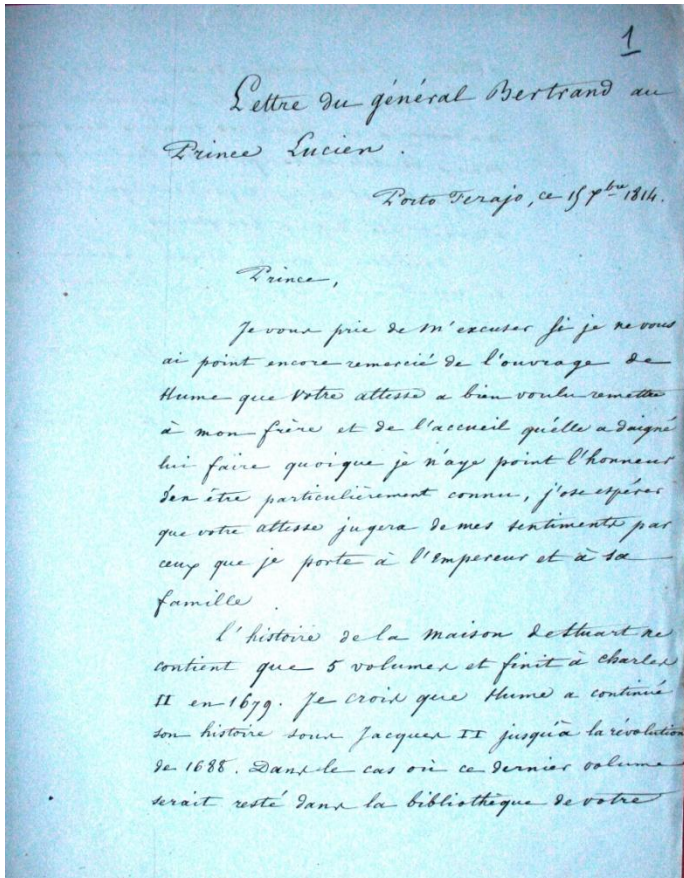 1
Lettre du général Bertrand au
Prince Lucien.
Porto Ferajo, ce 15 xbre 1814.
Prince,
Je vous prie de m'excuser si je ne vous
ai point encore remercié de l'ouvrage de
Hume que Votre altesse a bien voulu remettre
à mon frère et de l'accueil qu'elle a daigné
lui faire quoique je n'aye point l'honneur
d'en être particulièrement connu, j'ose espérer
que votre altesse jugera de mes sentiments par
ceux que je porte à l'Empereur et à sa
famille
L'histoire de la maison de Stuart ne
contient que 5 volumes et finit à Charles
II en 1679. Je crois que Hume a continué
son histoire sous Jacques II jusqu'à la révolution
de 1688. Dans le cas où ce dernier volume
serait resté dans la bibliothèque de votre